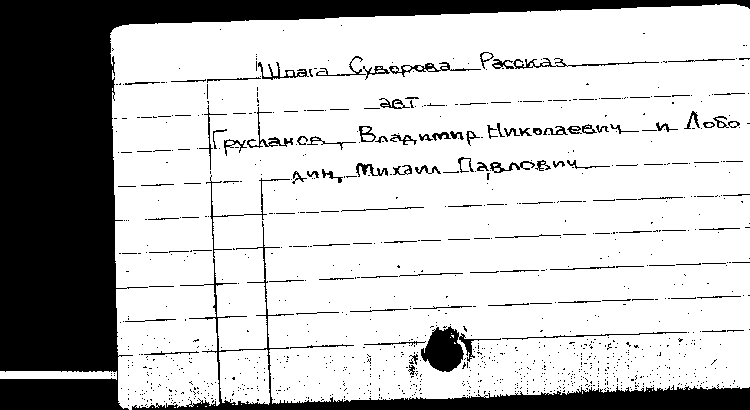 Шпага Суворова Рассказ
авт
Грусланов, Владимир Николаевич и Лобо
дин, Михаил Павлович